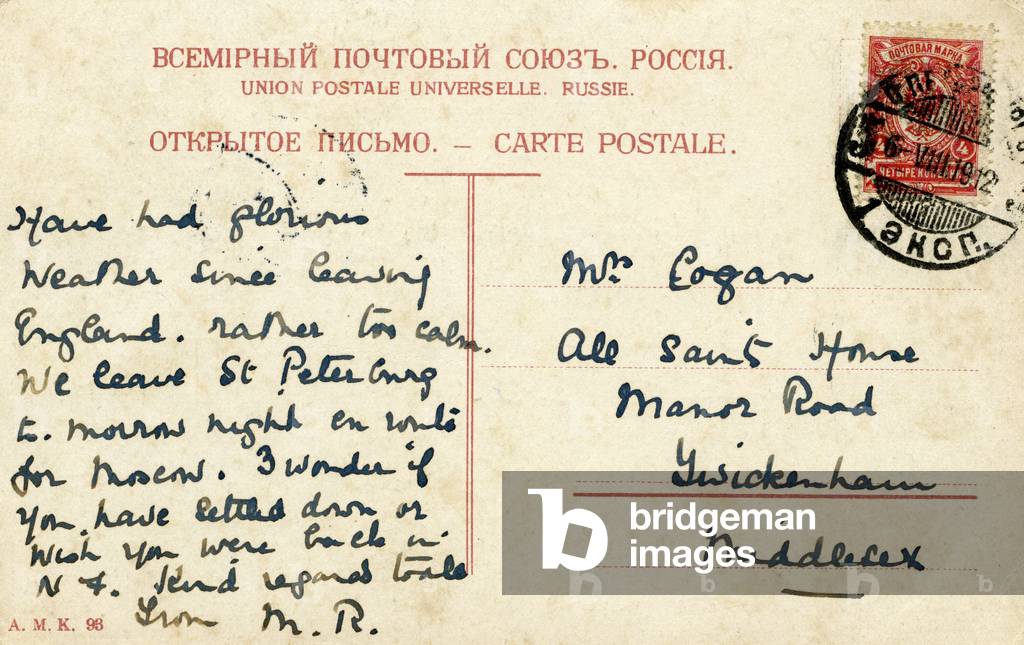 ВСЕМІРНЫЙ ПОЧТОВЫЙ СОЮЗЪ. РОССІЯ.
UNION POSTALE UNIVERSELLE. RUSSIE.
ОТКРЫТОЕ ПИСЬМО. – CARTE POSTALE.
ПОЧТОВАЯ МАРКА
4
ЧЕТЫРЕ КОП
6-VIII.1912
ЭКСП.
Have had glorious
Weather since leaving
England. rather too calm.
We leave St Petersburg
to. morrow night en route
for Moscow. I wonder if
you have settled down or
wish you were back in
N Z. Kind regards to all
From M. R.
Mrs Cogan
All Saints House
Manor Road
Twickenham
Middlesex
A. M. K. 93
bridgeman
images